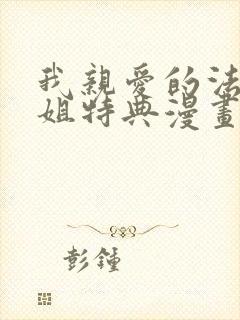 我親愛的法
姐特典漫畫
彭鍾